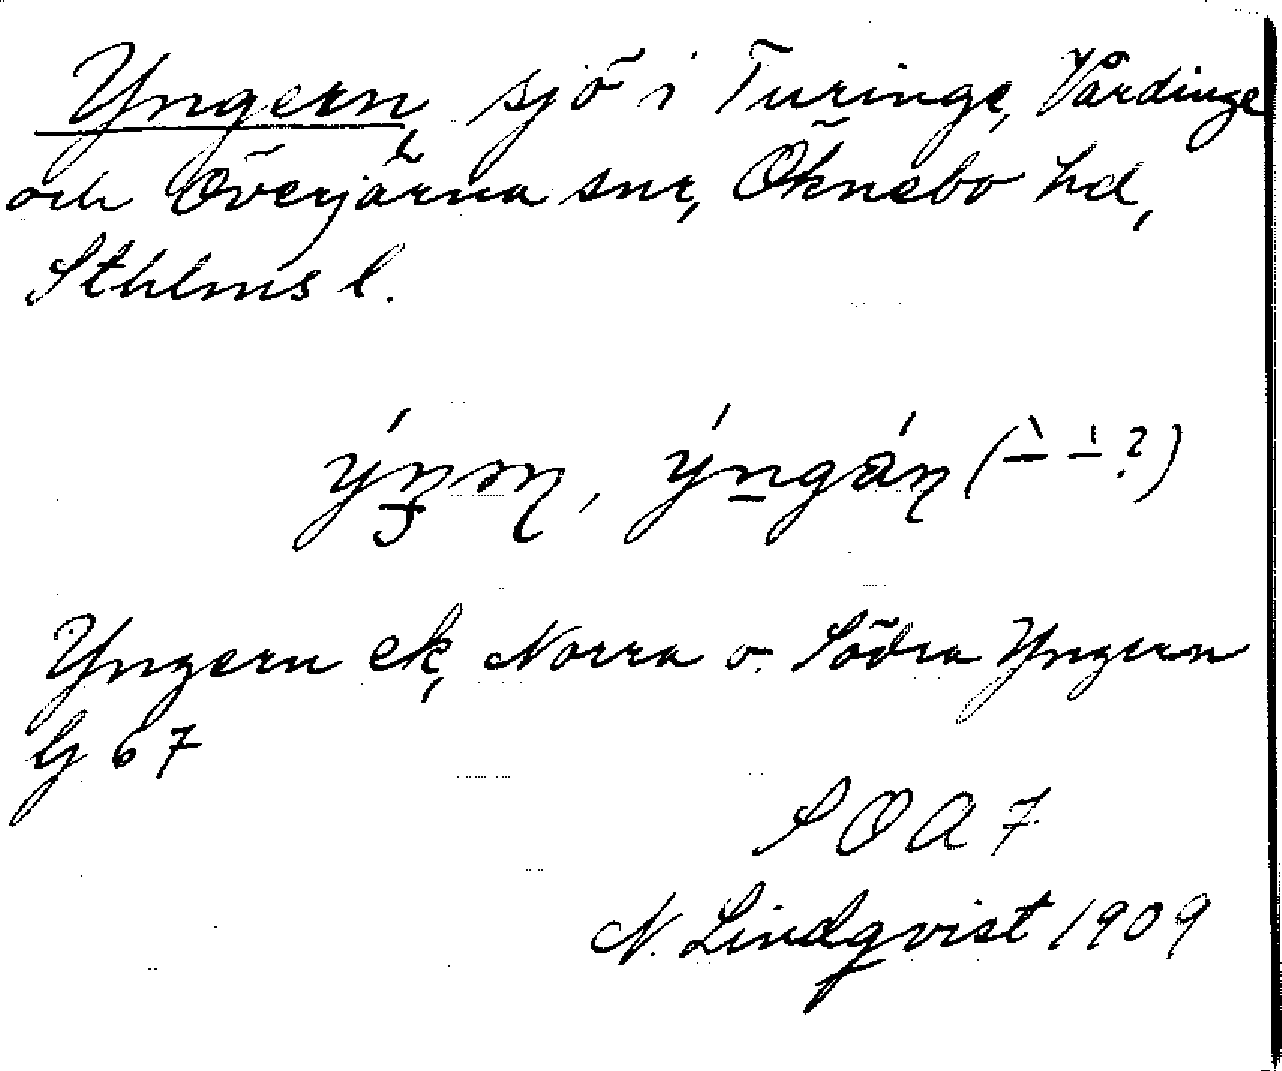 Yngern, sjö i Turinge, Vårdinge
och Överjärna snr, Öknebo hd,
Sthlms l.
Yngern ek, Norra o. Södra Yngern
G 67
SOA 7
N. Lindqvist 1909